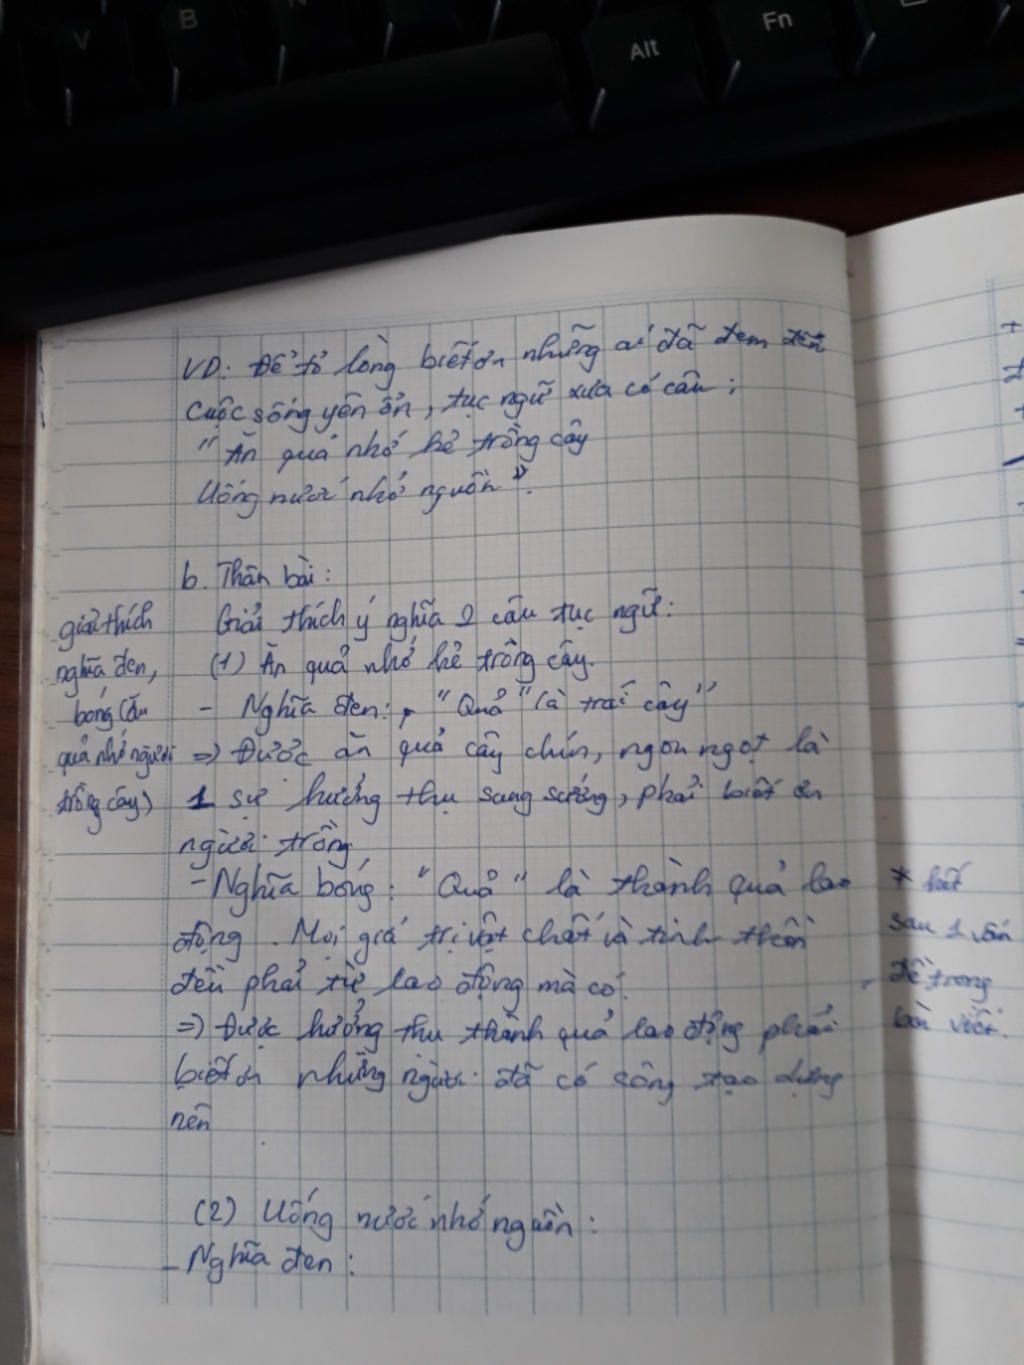 V
B
N
Alt
Fn
VD: Để tỏ lòng biết ơn những ai đã đem đến
cuộc sống yên ổn, tục ngữ xưa có câu:
"Ăn quả nhớ kẻ trồng cây
Uống nước nhớ nguồn".
b. Thân bài:
Giải thích ý nghĩa 2 câu tục ngữ:
(1) Ăn quả nhớ kẻ trồng cây.
- Nghĩa đen: "Quả" là trái cây"
=> Được ăn quả cây chín, ngon ngọt là
1 sự hưởng thụ sung sướng, phải biết ơn
người trồng
- Nghĩa bóng: "Quả" là thành quả lao
động. Mọi giá trị vật chất và tinh thần
đều phải từ lao động mà có.
=> Được hưởng thu thành quả lao động phải
biết ơn những người đã có công tạo dựng
nên
(2) Uống nước nhớ nguồn:
- Nghĩa đen:
giải thích
nghĩa đen,
bóng (ăn
quả nhớ người
trồng cây)
* hết
sau 1 vấn
đề trong
bài viết.